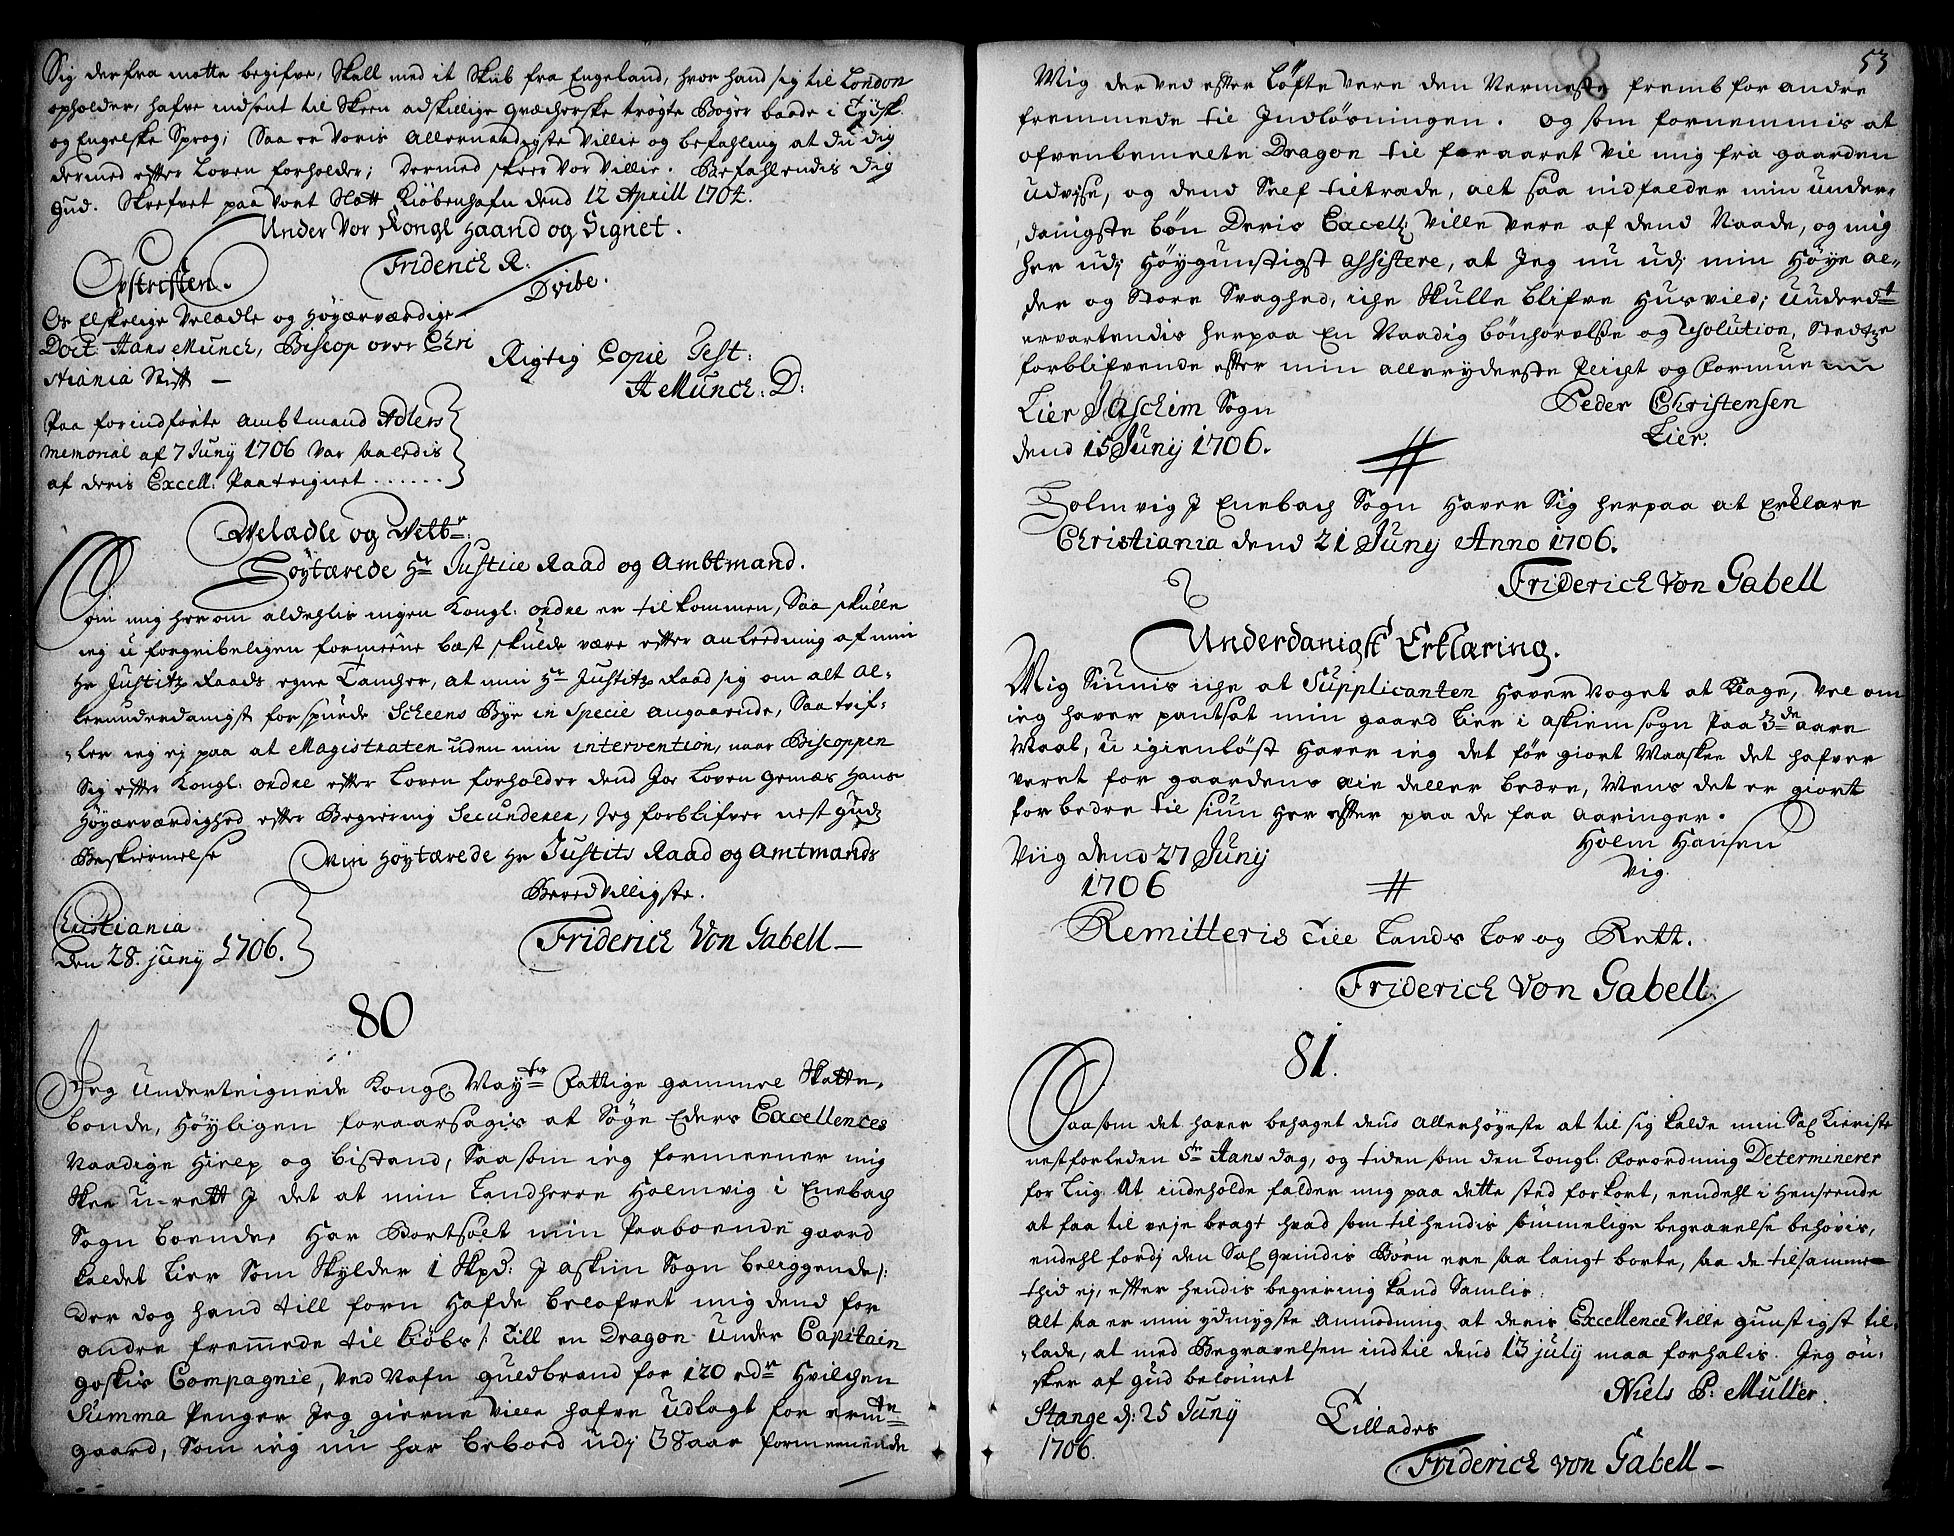 Sig derfra motte begifve, Skall med it Skib fra Engeland, hvor hand sig til London
opholder, hafve indsent til Skeen adskillige qvæcherske trögte Böger baade i Tydsk
og Engelske Sprog; Saa er Voris Allernaadigste Villie og befahling at du dig
dermed efter Loven forholder; Dermed skeer Vor Villie. Befahlendis dig
Gud. Skrefvet paa Vort Slott Kiöbenhafn dend 12 Aprill 1704.
Under Vor Kongl Haand og Signet.
Friderich R:
Dvibe.
Opskriften.
Os Elskelige Velædle og Höyærværdige
Doct: Hans Munch, Biscop over Chri
stiania Stift —
Rigtig Copie Test:
H Munch: D:
Paa forindförte Ambtmand Adlers
memorial af 7 Juny 1706 Var saaledis
af deris Excell: Paateignet ......
Velædle og Velbr:
Höytærede Hr Justice Raad og Ambtmand.
Om mig her om aldehlis ingen Kongl: ordre er tilkommen, Saa skulle
ieg u forgribeligen formeene bæst skulde være efter anleedning af min
Hr Justitz Raads egne Tancher, at min Hr Justitz Raad sig om alt al-
lerunderdanigst forspurde Scheens Bye in Specie angaaende, Saa tvif-
ler ieg ej paa at Magistraten uden min intervention, naar Biscoppen
Sig efter Kongl: ordre efter Loven forholder dend Jo Loven gemæs Hans
Höyærværdighed efter Begiering Secunderer, Jeg forblifver nest Guds
Beskiermelse
Min Höytærede Hr Justits Raad og Amtmands
Beredvilligste.
Christiania
den 28. juny 1706.
Friderich Von Gabell —
80
Jeg Underteignede Kongl Maytts fattige gammel Skatte,
bonde, Höyligen foraarsagis at Söge Eders Excellences
Naadige Hielp og bistand, Saasom ieg formeener mig
Skee u-rett J det at min Landherre Holmvig i Enebach
Sogn boende, Har Bortsolt min Paaboende gaard
kaldet Lier Som Skylder 1 Skpd: J Askim Sogn beliggende /:
Der dog hand till forn Hafde belofvet mig dend for
andre fremmede til kiöbs /: till en Dragon under Capitain
goskis Compagnie, Ved Nafn Guldbrand for 120 rdr Hvilchen
Summa Penger Jeg gierne Ville hafve udlagt for ermte
gaard, Som ieg nu har beboed udj 38 aar formeenende
53
Mig der ved efter Löfte Vere den Nermeste fremb for andre
fremmede til Indlösningen. Og som fornemmis at
ofvenbemelte Dragon til foraaret Vil mig fra gaarden
udvise, og dend Self tiltrade, alt saa nidfalder min under-
danigste bön Deris Excell: Ville vere af dend Naade, og mig
her udj Höygunstigst Assistere, at Jeg nu udj min Höye al-
der og Store Svaghed, iche skulle blifve Husvild; Underdt
ervartendis herpaa En Naadig bönhörelsse og Resolution, Stedtze
forblifvende efter min allerryderste Pligt og Formue
Lier J Aschim Sogn
dend 15 Juny 1706.
Peder Christensen
Lier.
Holmvig J Enebach Sogn Haver Sig herpaa at Erklære
Christiania dend 21 Juny Anno 1706.
Friderich Von Gabell
Underdanigst Erklæring.
Mig Siunis iche at Supplicanten Haver Noget at Klage, Vel om
ieg haver pantsat min gaard Lier i Askiem sogn Paa 3de aare
Maal, U igienlöst Haver ieg det för giort Maaskee det hafver
veret for gaardens Eie deller bedre, Mens det er giort
for bedre til siun Her efter paa de faa Aaringer.
Viig dend 27 Junij
1706
Holm Hansen
Vig.
Remitteris Till Lands Lov og Rett.
Friderich Von Gabell
81.
Saasom det haver behaget deus Allerhöyeste at til sig kalde min Sal Kieriste
nestforleden Str Hans dag, og tiden som den Kongl: Forordning Determinerer
for Lug At indeholde falder mig paa dette sted for kort, eendehl i Henseende
at faa til veje bragt hvad som til hendis sömmelige begravelse behövis,
endehl fordj den Sal qvindis Börn ere saa langt borte, saa de tilsamme
thid ej, efter hendis begiering kand Samlis.
Alt saa er min ydmygste Anmodning at deris Excellence Ville gunstigst til-
lade, at med Begravelsen indtil dend 13 july maa forhalis. Jeg ön-
sker af Gud belönnet
Stange d: 25 Juny
1706.
Niels P: Muller.
Tillades
Friderich von Gabell —